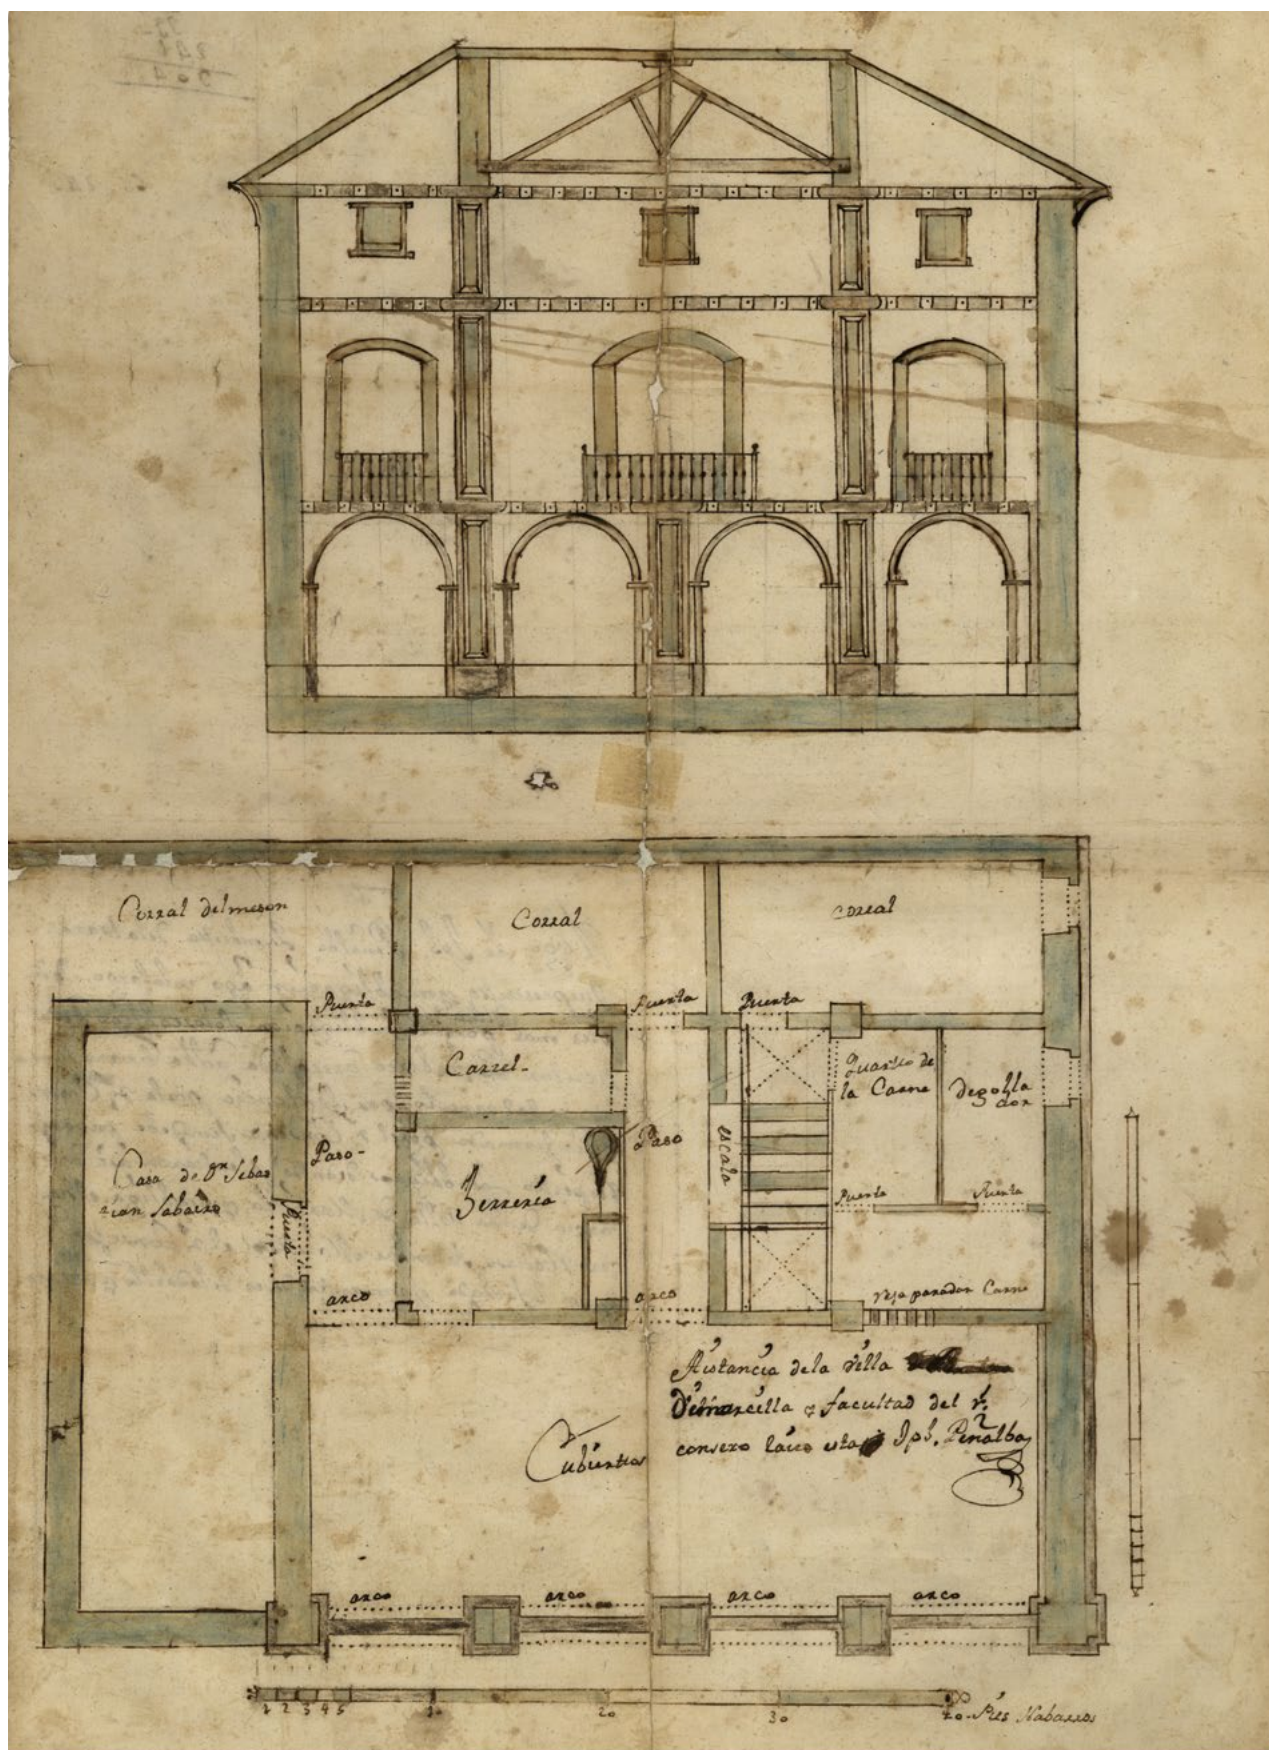 Corral del meson
Corral
corral
Puerta
Puerta
Puerta
Carzel-
Quarto de
la Carne
degolla
dor
Paso-
Paso
escala
Casa de Dn Sebas
tian Sabaiza
Puerta
Herreria
Puerta
Puerta
arco
arco
reja para dar Carne
Ainstancia dela villa
De marcilla y facultad del rl
consexo Paso
Cubiertos
arco
arco
arco
arco
1 2 3 4 5 10 20 30 40-Pies Nabarros